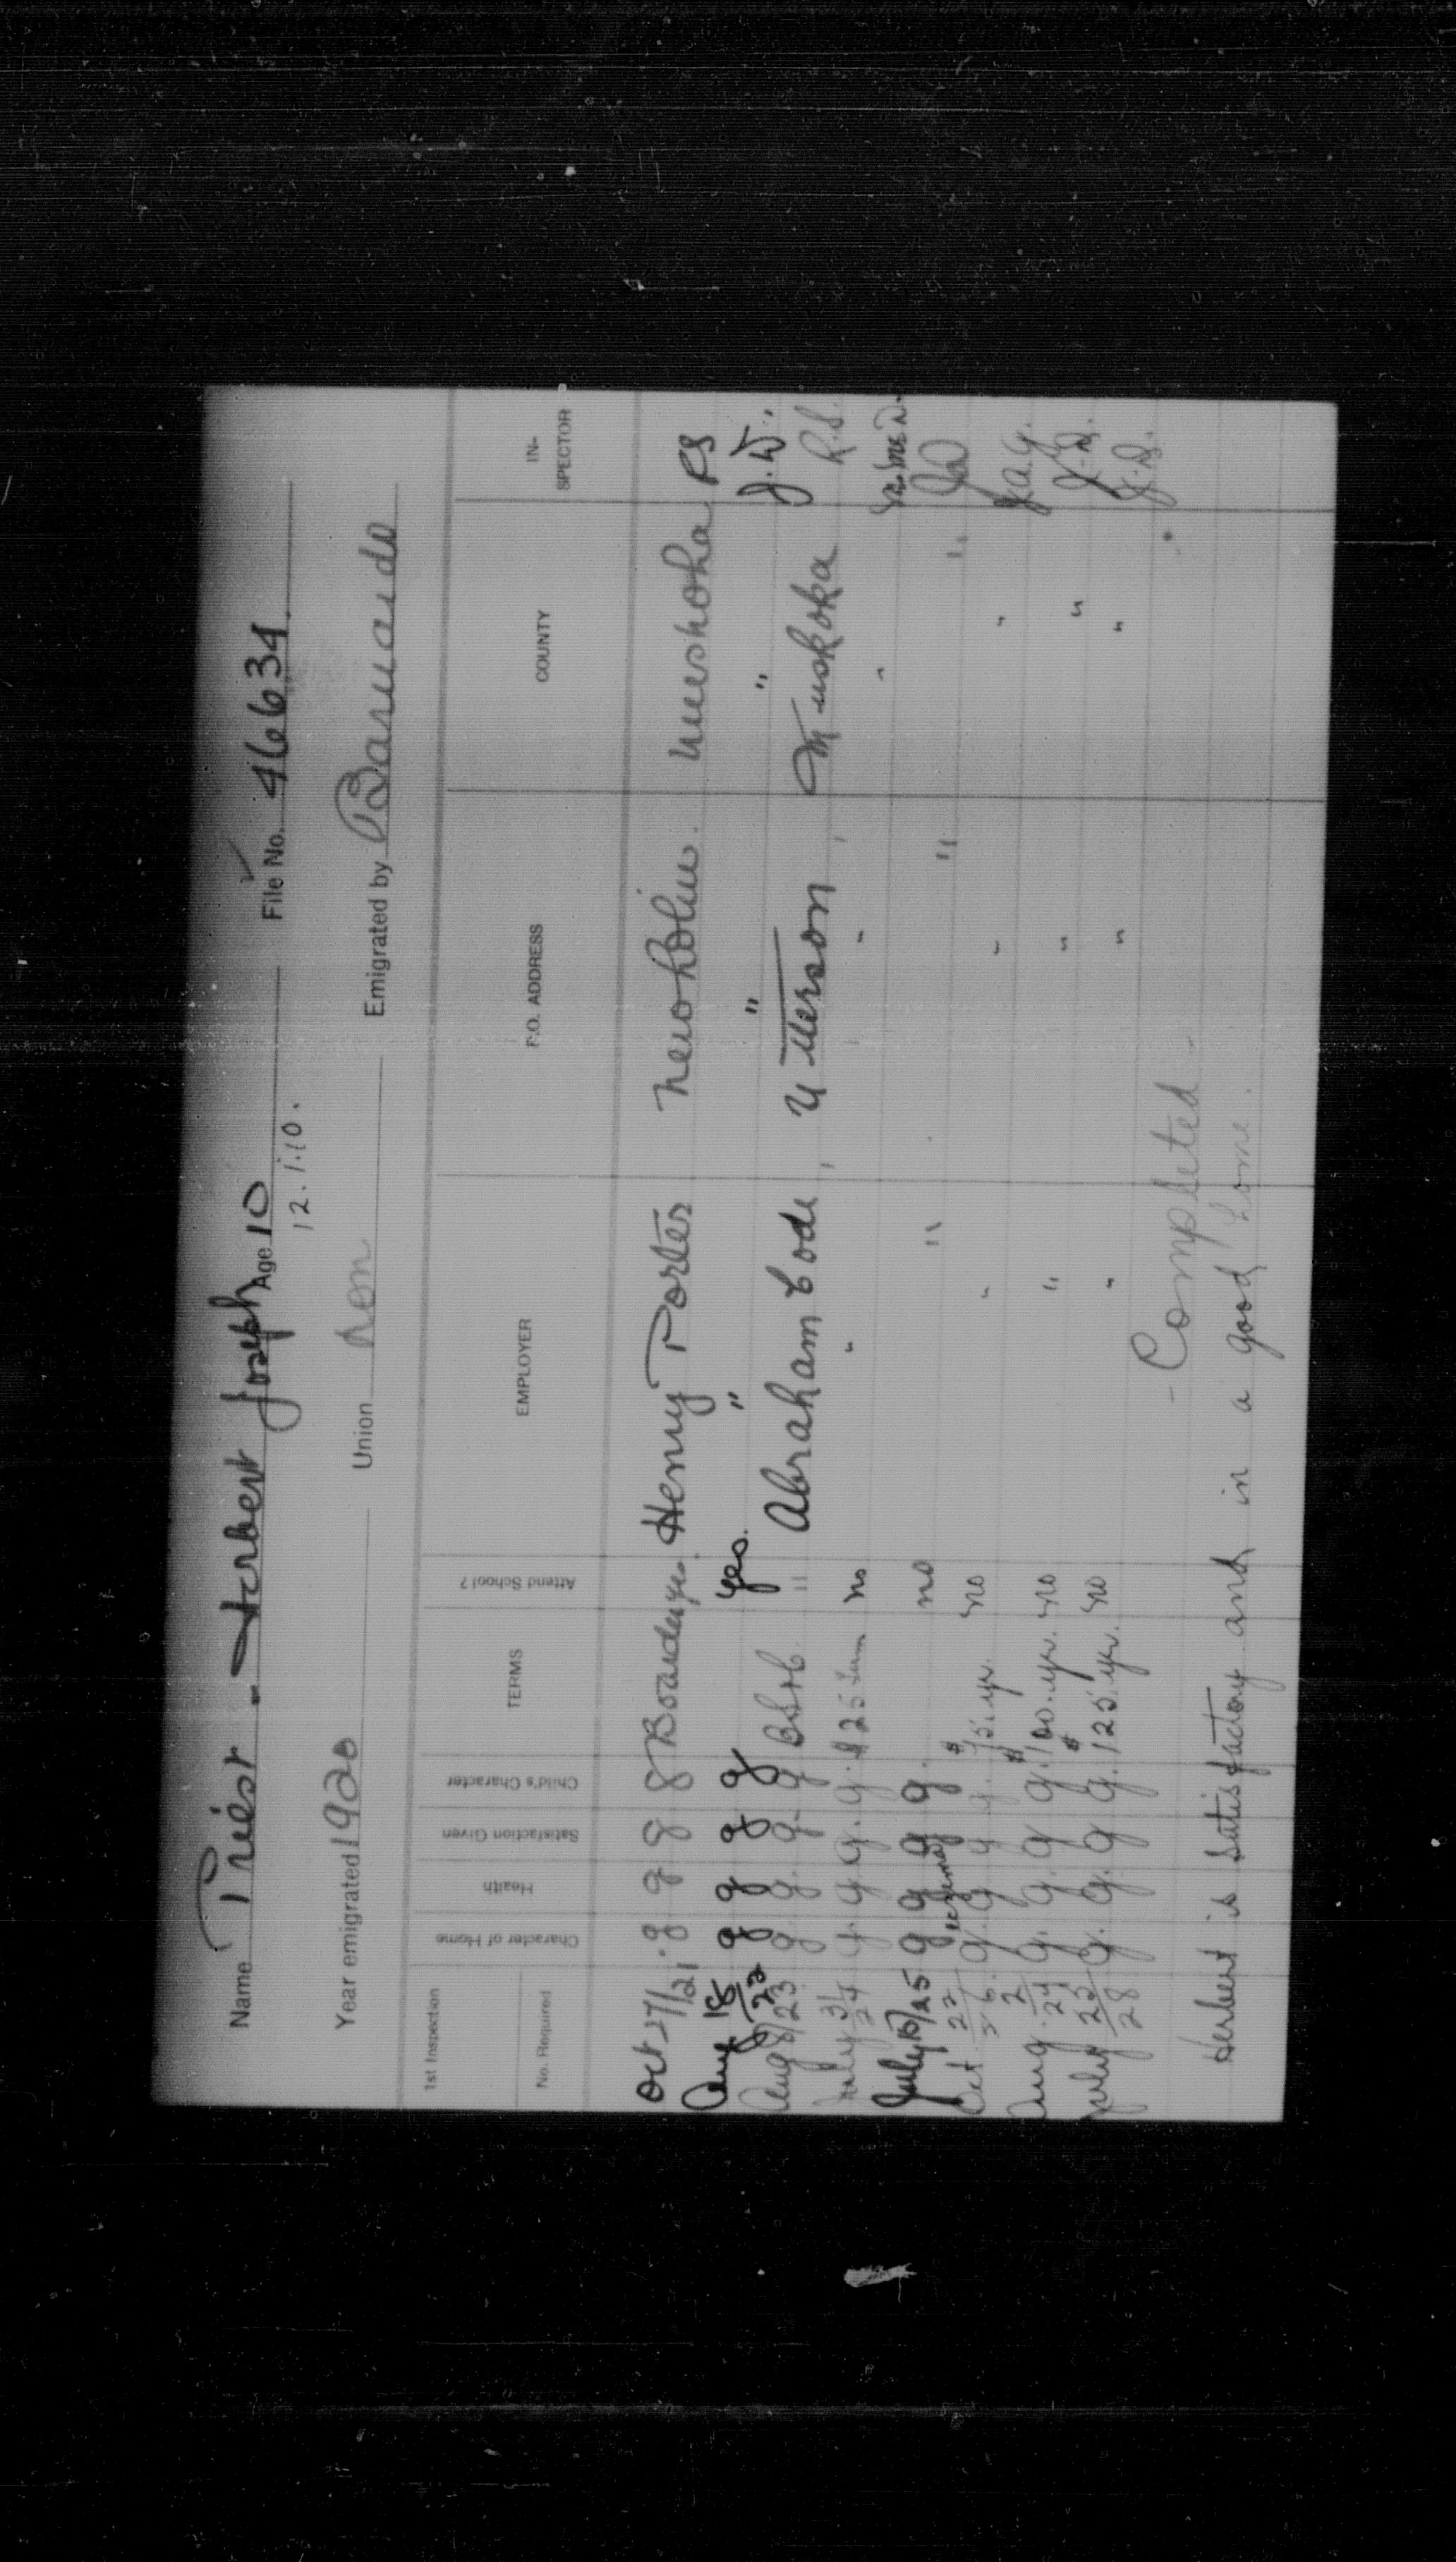 Name Priest - Herbert Joseph Age 10 File No. 46634
12.1.10.
Year emigrated 1920 Union non Emigrated by Barnardo
1st Inspection
No. Required
Character of Home Health Satisfaction Given Child's Character TERMS Attend School? EMPLOYER P.O. ADDRESS COUNTY IN-SPECTOR
Oct 27/21. g g g g Boarder yes. Henry Porter Newholm. Muskoka RS
Aug 18/22 g g g g yes. " " " J.W.
Aug 8/23 g g. g. g BS+C " Abraham Code, Utterson, Muskoka R.S.
July 31/24 g. g g. g. $25 no " " "
July 15/25 g g g g. no " " "
Oct 22/26. g. g g g. $75. yr. no " " " J.A.G.
Aug. 2/27 g. g. g g. $100. yr. no " " " J.D.
July 25/28 g. g. g g. $125. yr. no " " " J.D.
- Completed -
Herbert is satisfactory and in a good home.